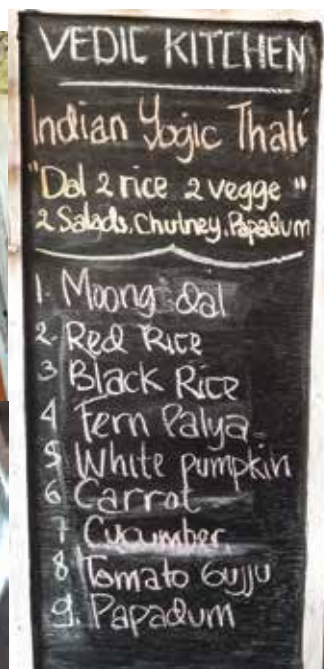 VEDIC KITCHEN
Indian Yogic Thali
"Dal 2 rice 2 vegge"
2 Salads, Chutney, Papadum
1. Moong dal
2. Red Rice
3 Black Rice
4 Fern Palya
5 White pumpkin
6 Carrot
7 Cucumber
8 Tomato Gujju
9. Papadum